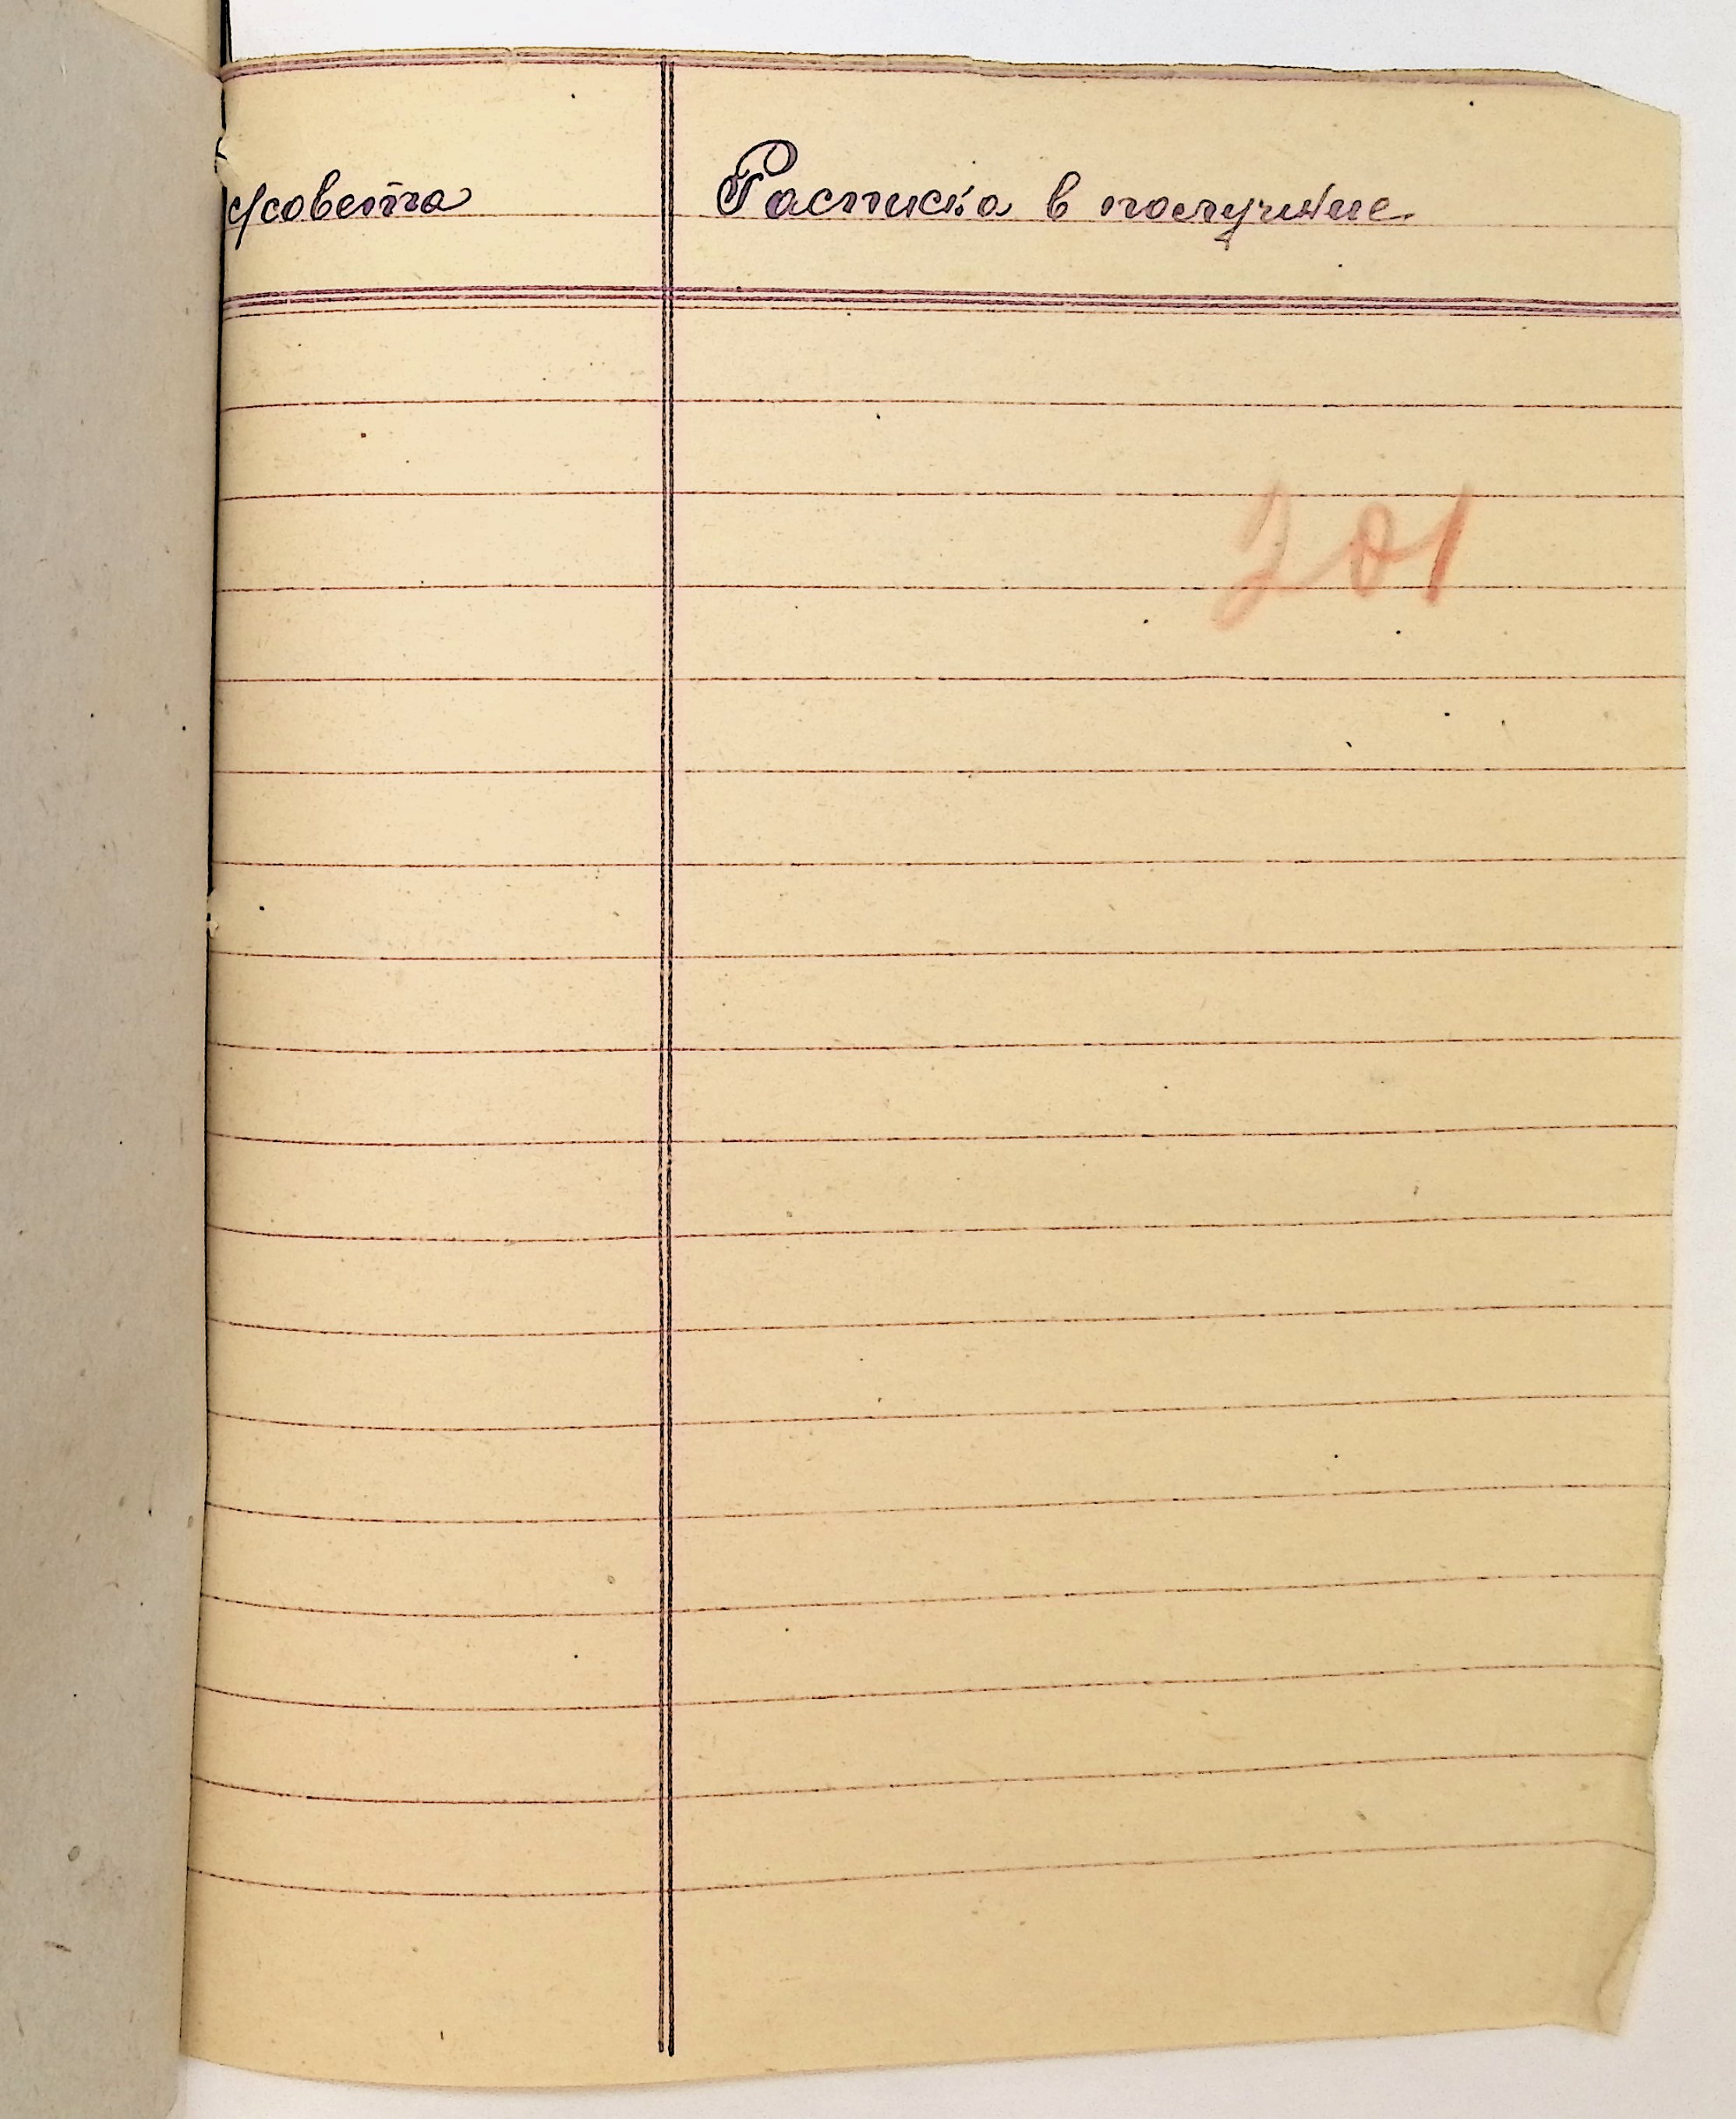 с/совета
Расписка в получение.
201